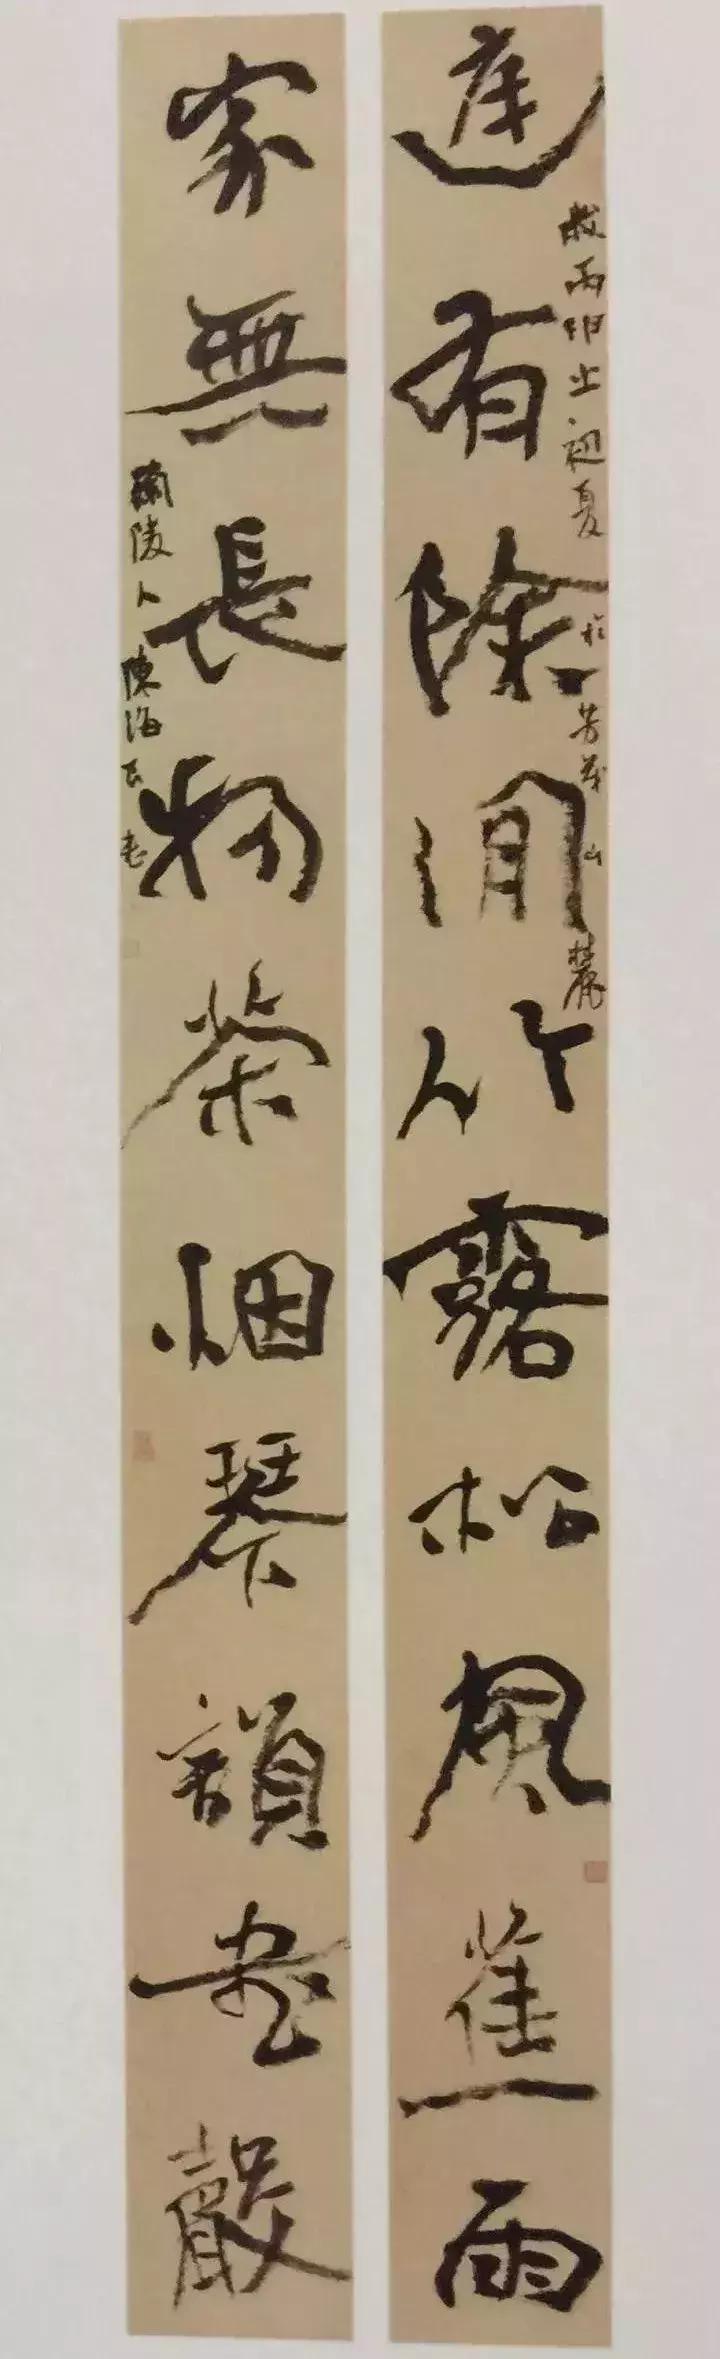 庭有除閒竹露松風蕉雨
歲丙申之初夏於芳茂山麓
家無長物茶烟琴韻書聲
蘭陵人陳海良書